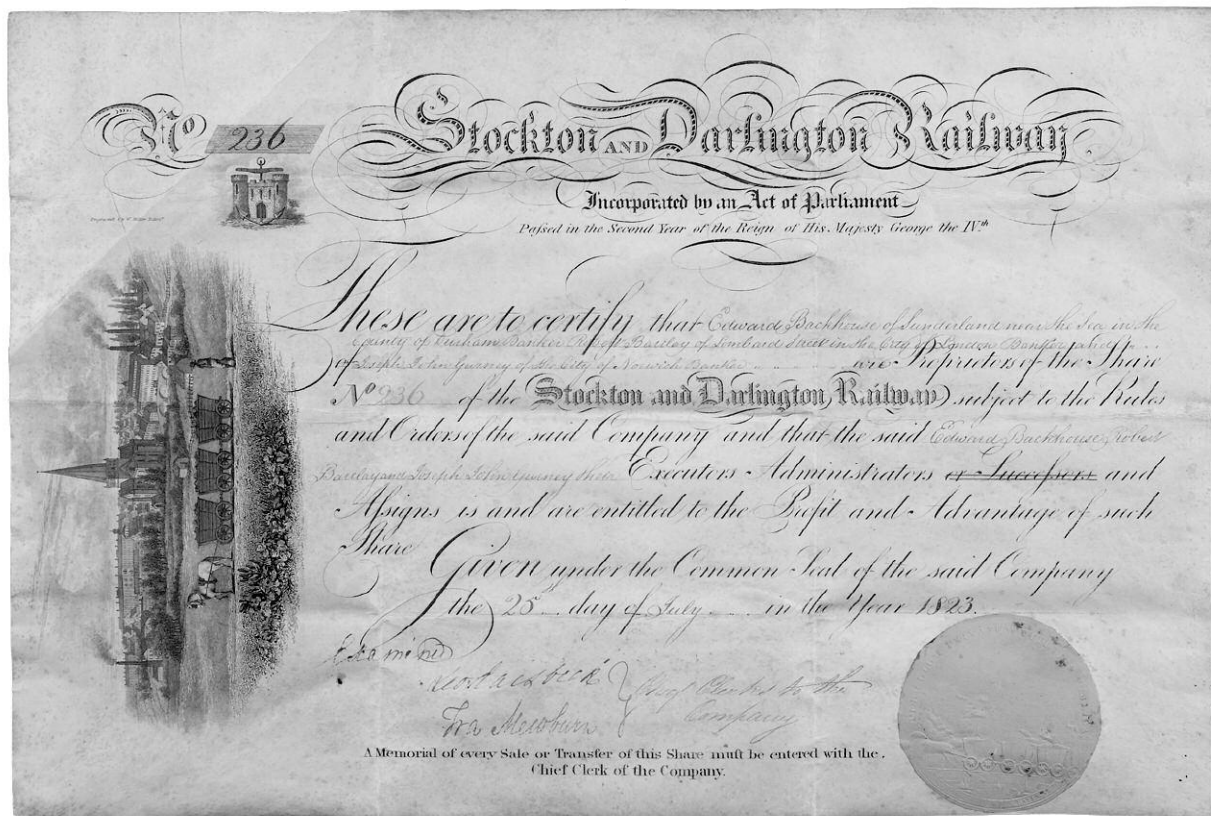 No 236 Stockton AND Darlington Railway.
Incorporated by an Act of Parliament
Paſsed in the Second Year of the Reign of His Majesty George the IVth
These are to certify that Edward Backhouse of Sunderland near the Sea in the
County of Durham Banker Robert Barclay of Lombard Street in the City of London Banker
Joseph John Gurney of the City of Norwich Banker are Proprietors of the Share
No 236 of the Stockton and Darlington Railway subject to the Rules
and Orders of the said Company and that the said Edward Backhouse Robert
Barclay and Joseph John Gurney their Executors Administrators or Succeſsors and
Aſsigns is and are entitled to the Profit and Advantage of such
Share Given under the Common Seal of the said Company
the 25 day of July in the Year 1823.
Examined
Fra Mewburn Company
A Memorial of every Sale or Transfer of this Share muſt be entered with the
Chief Clerk of the Company.